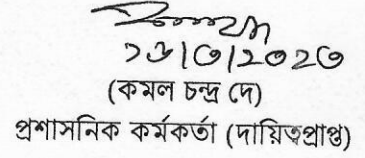 ২৬|৩|২০২৩
(কমল চন্দ্র দে)
প্রশাসনিক কর্মকর্তা (দায়িত্বপ্রাপ্ত)